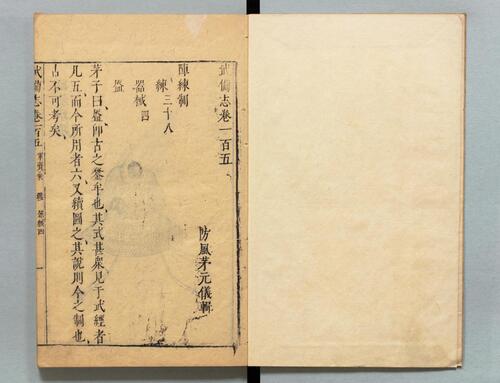 武備志卷一百五
防風茅元儀輯
陣練制
練三十八
器械四
盔
茅子曰盔卽古之鍪牟也其式甚衆見于武經者
凡五而今所用者六又續圖之其說則今之制也
古不可考矣
武備志卷一百五
器械四
一